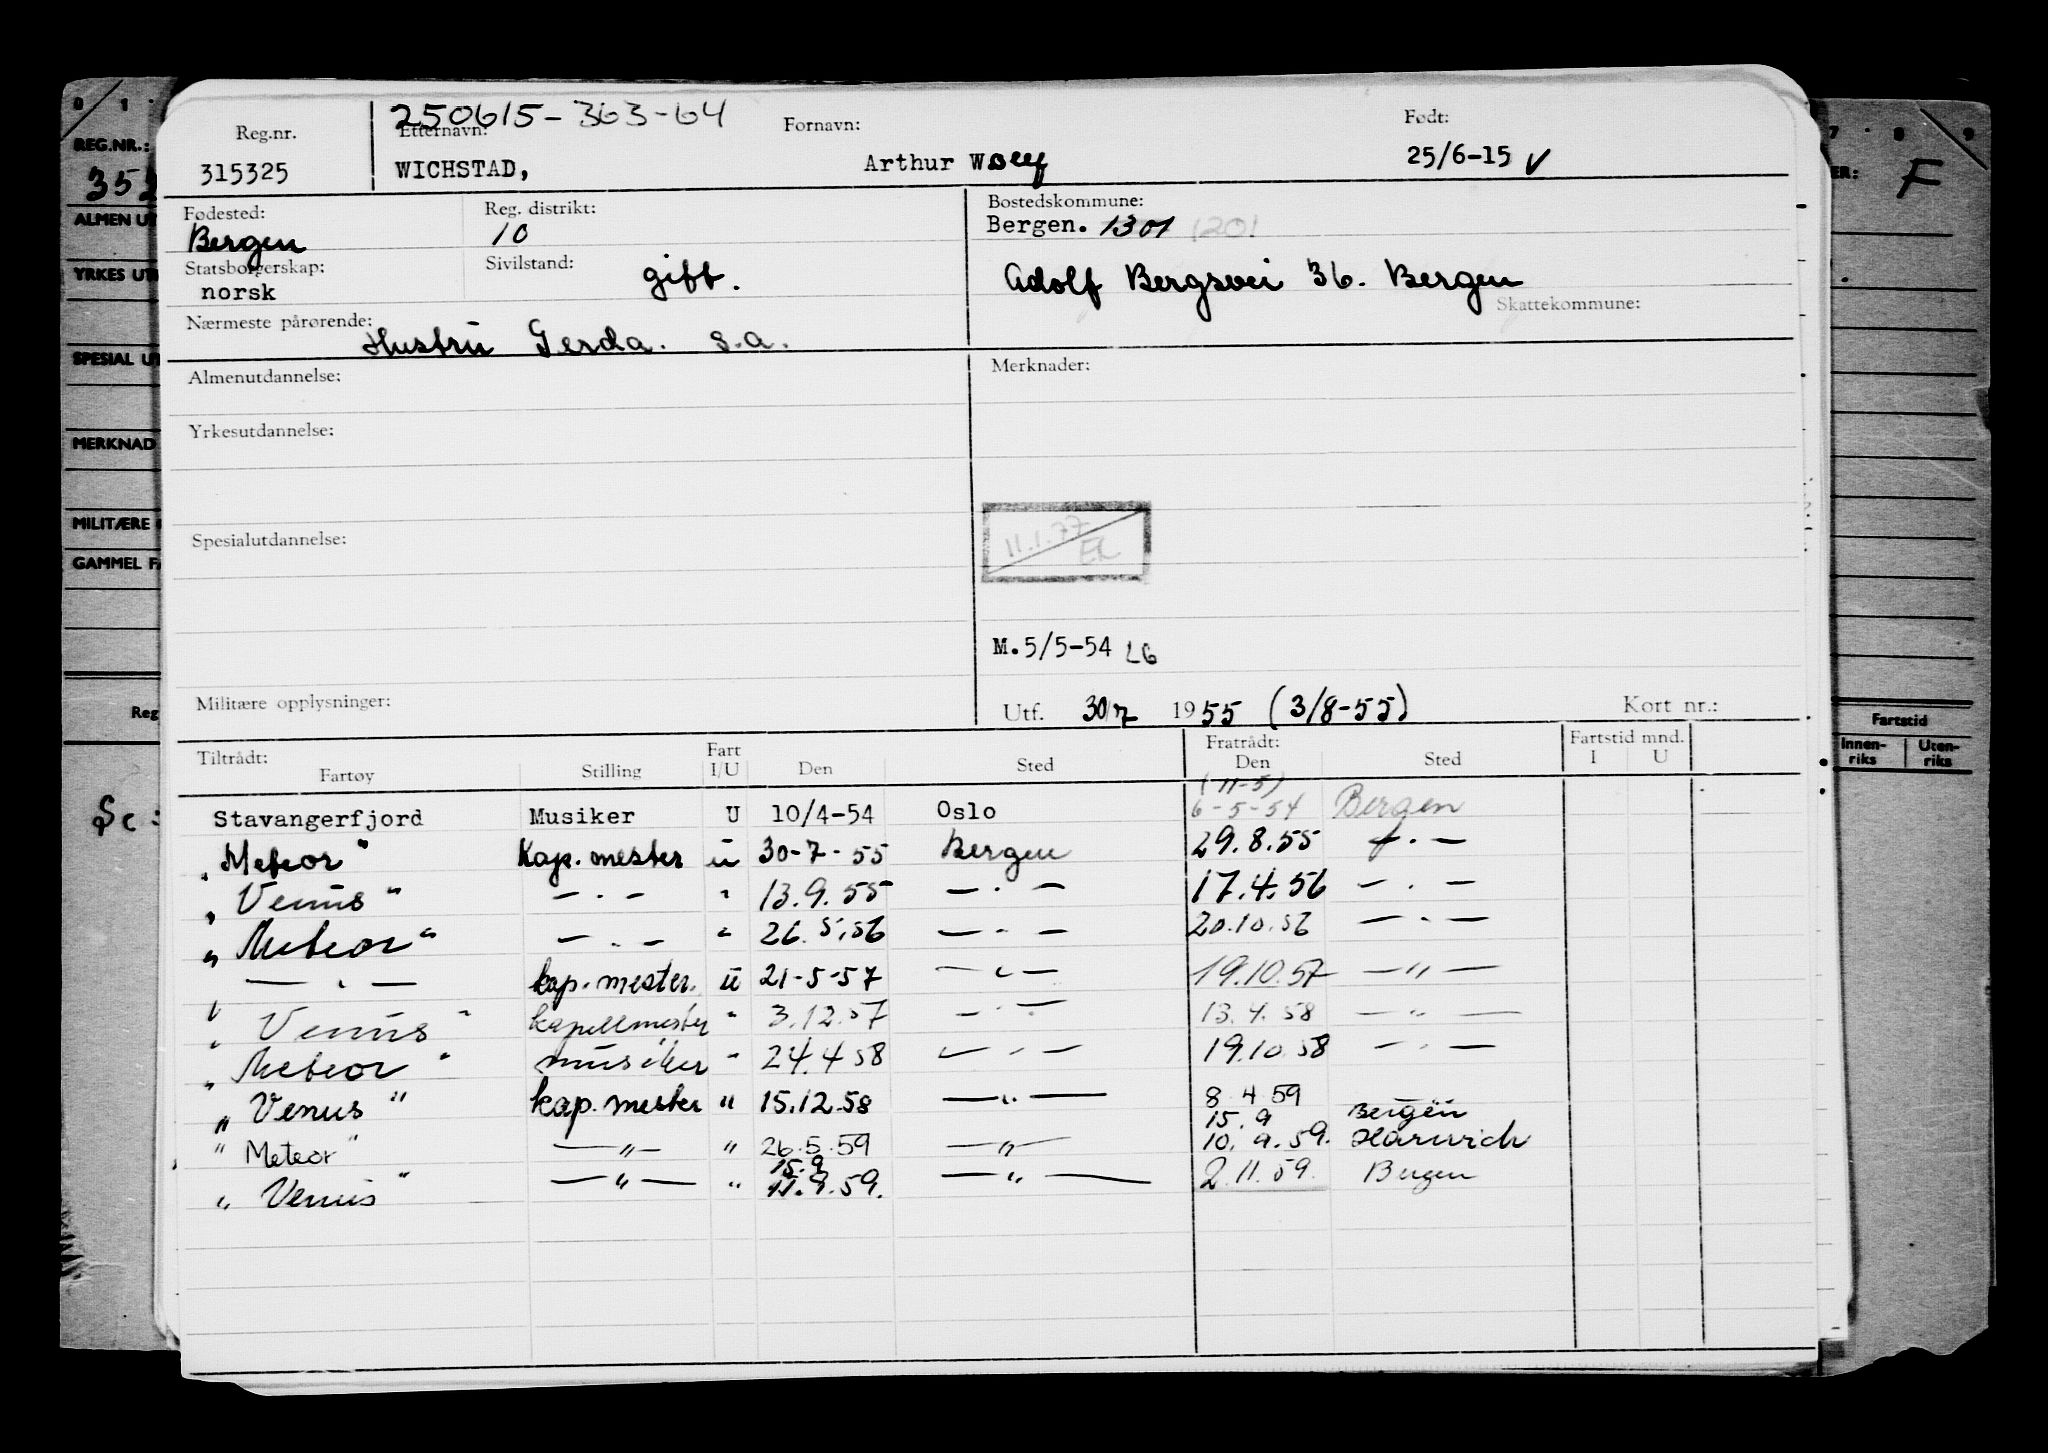 250615-363-64
Reg.nr. Etternavn: Fornavn: Født:
315325 WICHSTAD, Arthur 25/6-15 V
Fødested: Reg. distrikt: Bostedskommune:
Bergen 10 Bergen. 1301 1201
Statsborgerskap: Sivilstand:
norsk gift. Adolf Bergsvei 36. Bergen
Skattekommune:
Nærmeste pårørende: Hustru Gerda. s.a.
Almenutdannelse: Merknader:
Yrkesutdannelse:
Spesialutdannelse: 11.1.77
M.5/5-54 LG
Militære opplysninger: Utf. 30/7 1955 (3/8-55) Kort nr.:
Tiltrådt: Fart Fratrådt: Fartstid mnd.
Fartøy Stilling I/U Den Sted Den Sted I U
(11-5)
Stavangerfjord Musiker U 10/4-54 Oslo 6-5-54 Bergen
"Meteor" Kap.mester u 30-7-55 Bergen 29.8.55 — " —
"Venus" — " — " 13.9.55 — " — 17.4.56 — " —
"Meteor" — " — " 26.5.56 — " — 20.10.56 — " —
— " — kap.mester. u 21-5-57 — " — 19.10.57 — " —
"Venus" kapellmester " 3.12.57 — " — 13.4.58 — " —
"Meteor" musiker " 24.4.58 — " — 19.10.58 — " —
"Venus" kap.mester " 15.12.58 — " — 8.4.59 Bergen
15.9
"Meteor" — " — " 26.5.59 — " — 10.9.59. Harwich
15.9
"Venus" — " — " 11.9.59. — " — 2.11.59. Bergen
0 1
REG.NR.:
ALMEN UT
YRKES UT
SPESIAL UT
MERKNAD
MILITÆRE
GAMMEL FA
Reg
7 8 9
ER: F
Fartstid
Innen-riks Uten-riks